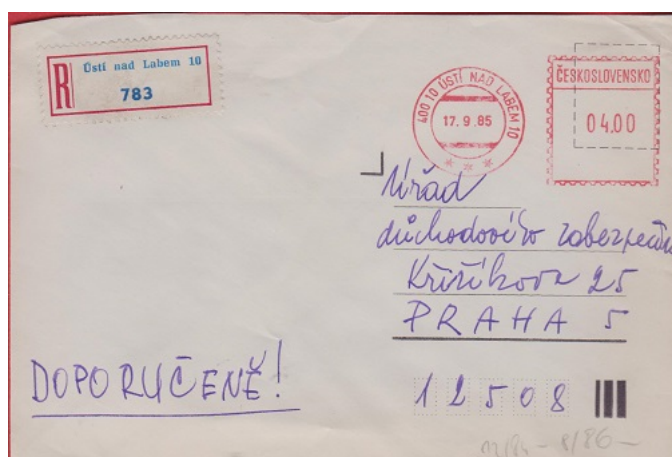 R Ústí nad Labem 10
783
400 10 ÚSTÍ NAD LABEM 10
17. 9. 85
ČESKOSLOVENSKO
04.00
Úřad
důchodového zabezpeče
Křižíkova 25
PRAHA 5
DOPORUČENĚ!
12508